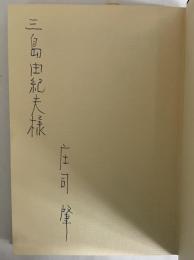 三島由紀夫様
庄司肇